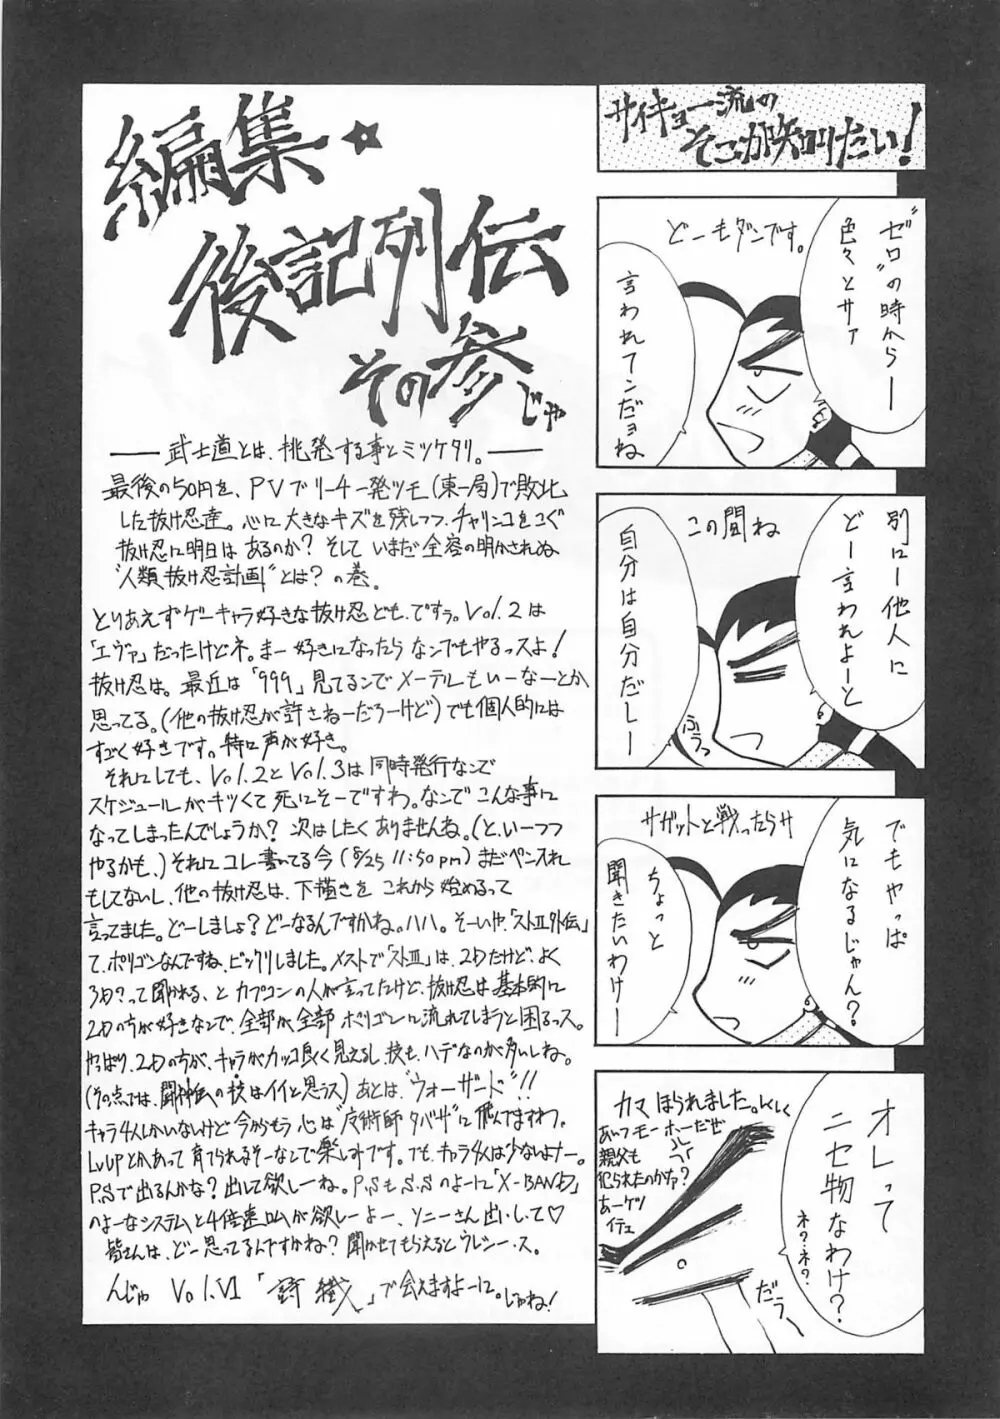 編集☆
後記列伝
その参じゃ
──武士道とは、挑発する事とミツケタリ。──
最後の50円を、PVでリーチ一発ツモ(東一局)で敗北
した抜け忍達。心に大きなキズを残しつつ、チャリンコをこぐ
抜け忍に明日はあるのか?そしていまだ全容の明かされぬ
"人類抜け忍計画"とは?の巻。
とりあえずゲーキャラ好きな抜け忍ども、ですう。Vol.2は
「エヴァ」だったけどネ。まー好きになったらなんでもやるっスよ!
抜け忍は。最近は「999」見てるんでメーテルもいーなーとか
思ってる。(他の抜け忍が許さねーだろーけど)でも個人的には
すごく好きです。特に声が好き。
それにしても、Vol.2とVol.3は同時発行なんで
スケジュールがキツくて死にそーですわ。なんでこんな事に
なってしまったんでしょうか?次はしたくありませんね。(と、いーつつ
やるかも。)それにコレ書いてる今(8/25 11:50pm)まだペン入れ
もしてないし、他の抜け忍は、下描きをこれから始めるって
言ってました。どーしましょ?どーなるんですかね。ハハ。そーいや、「ストⅡ外伝」
て、ポリゴンなんですね、ビックリしました。メストで「ストⅢ」は、2Dだけど、よく
3D?って聞かれる、とカプコンの人が言ってたけど、抜け忍は基本的に
2Dの方が好きなんで、全部が全部ポリゴンに流れてしまうと困るっス。
やっぱり、2Dの方が、キャラがカッコ良く見えるし、技も、ハデなのが多いしね。
(その点では、闘神伝の技はイイと思うス)あとは、"ウォーザード"!!
キャラ4人しかいないけど今からもう心は"魔術師タバサ"に飛んでますわ。
LvUPとかあって育てられるそーなんで楽しみです。でも、キャラ4人は少ないよナー。
P.Sで出るんかな?出して欲しーね。P.SもS.Sのよーに「X-BAND」
のよーなシステムと4倍速ロムが欲しーよー、ソニーさん出し・して♡
皆さんは、どー思ってるんですかね?聞かせてもらえるとウレシー・ス。
んじゃ Vol.Ⅵ「
」で会えますよーに。じゃね!
サイキョー流の
そこが知りたい!
"ゼロ"の時からー
色々とサァ
どーもダンです。
言われてンだョね
別にー他人に
どー言われよーと
この間ね
自分は自分だしー
ふぅっ
でもやっぱ
気になるじゃん?
サガットと戦ったらサ
ちょっと
聞きたいわけー
オレって
ニセ物なわけ?
ネ?ネ?
カマほられました。しくしく
あいつモーホーだぜ
親父も
犯られたのかナァ?
あーケツ
イテェ
だぅー